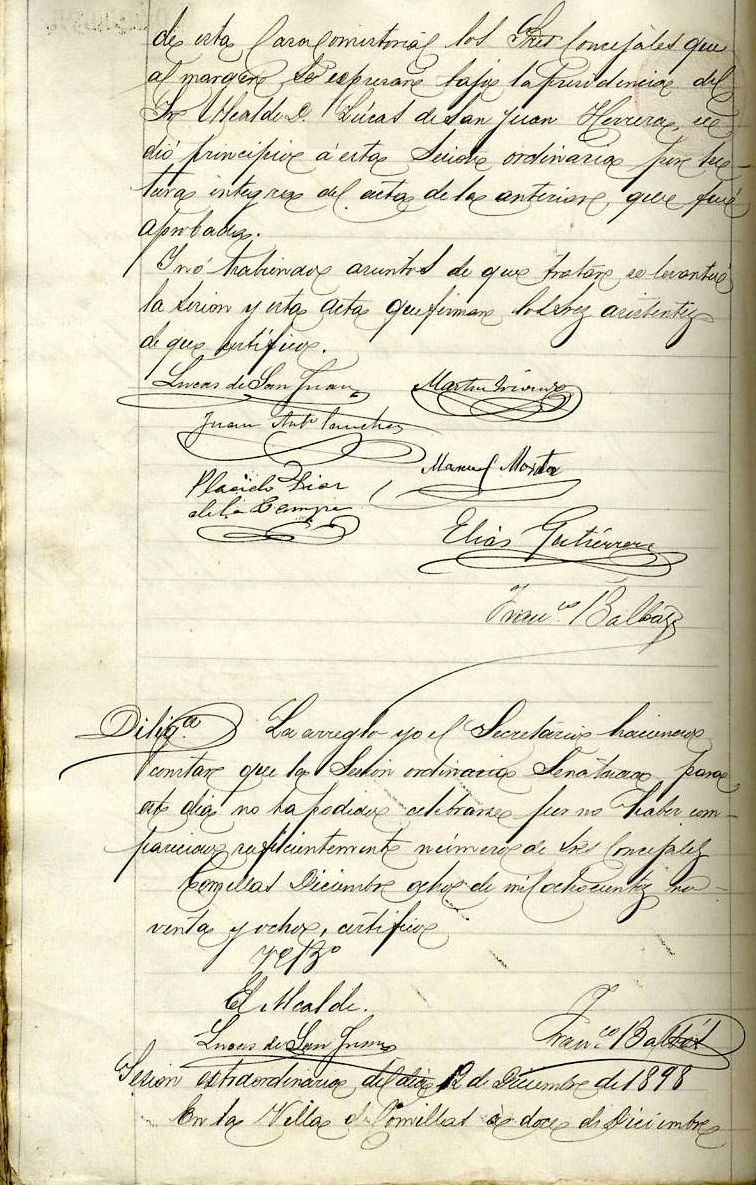 de esta Casa Consistorial los Sres Concejales que
al margen se espresan bajo la presidencia del
Sr Alcalde D. Lúcas de San Juan Herrera, se
dió principio á esta Sesion ordinaria por lec-
tura integra del acta de la anterior, que fué
aprobada.
Y nó habiendo asuntos de que tratar se levantó
la sesion y esta acta que firman los Srez asistentez
de que certífico.
Lucas de San Juan
Martin
Juan Antº Sanchez
Manuel
Placido Diaz
de la Campa
Elias Gutiérrez
Franco Balbás
Diliga La arreglo yo el Secretário haciendo
constar que la Sesion ordinaria Senalada para
este dia no ha podido celebrarse por no haber com-
parecido suficientemente número de Sres Concejalez
Comillas Diciembre ocho de mil ochocientoz no-
venta y ocho, certifico
Vº Bº
El Alcalde.
Lucas de San Juan
Franco Balbás
Sesion extraordinaria del dia 12 de Diciembre de 1898
En la Villa de Comillas a doce de Diciembre